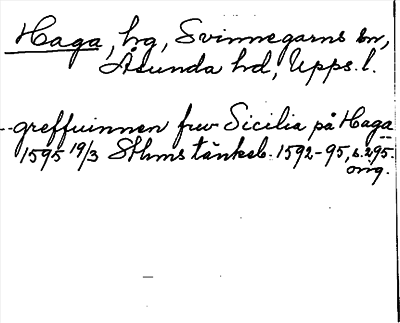 Haga, hg, Svinnegarns sn,
Åsunda hd, Upps. l.
--greffuinnen fru Sicilia på Haga--
1595 19/3 Sthms tänkeb. 1592-95, s. 295.
orig.